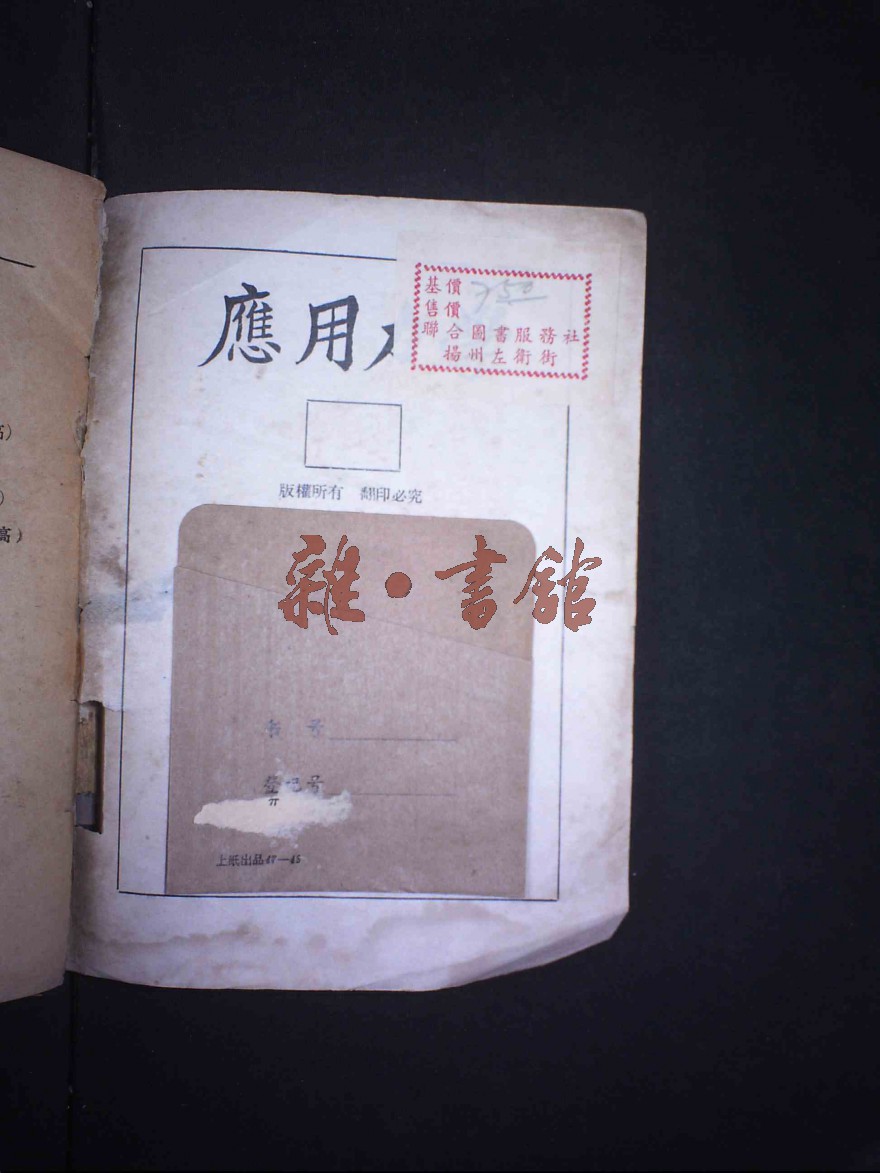 應用
基價
售價
聯合圖書服務社
揚州左衛街
版權所有 翻印必究
雜·書館
书号
登记号
上紙出品67—65
高)